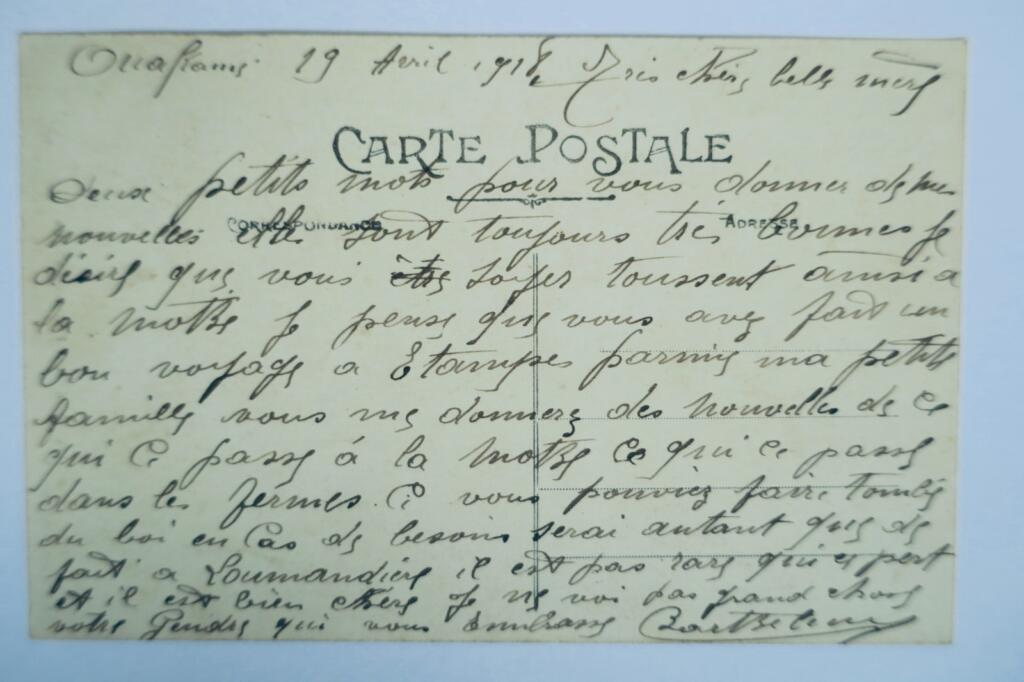 Ouakam 19 Avril 1918, Tres chère belle mere
CARTE POSTALE
deux petits mots pour vous donner de mes
CORRESPONDANCE ADRESSE
nouvelles elle sont toujours tres bonnes Je
désire que vous soyer toussent ainsi a
la motte Je pense que vous avez fait un
bon voyage a Etampes parmis ma petite
famille vous me donnerez des nouvelles de ce
qui ce passe á la motte ce qui ce passe
dans les fermes. Ci vous pouviez faire tombé
du boi en Cas de besoin serai autant que de
fait a Loumandiere il est pas rare qui ce pert
et il est bien chere Je ne voi pas grand chose
votre Gendre qui vous Embrasse Barthelemy